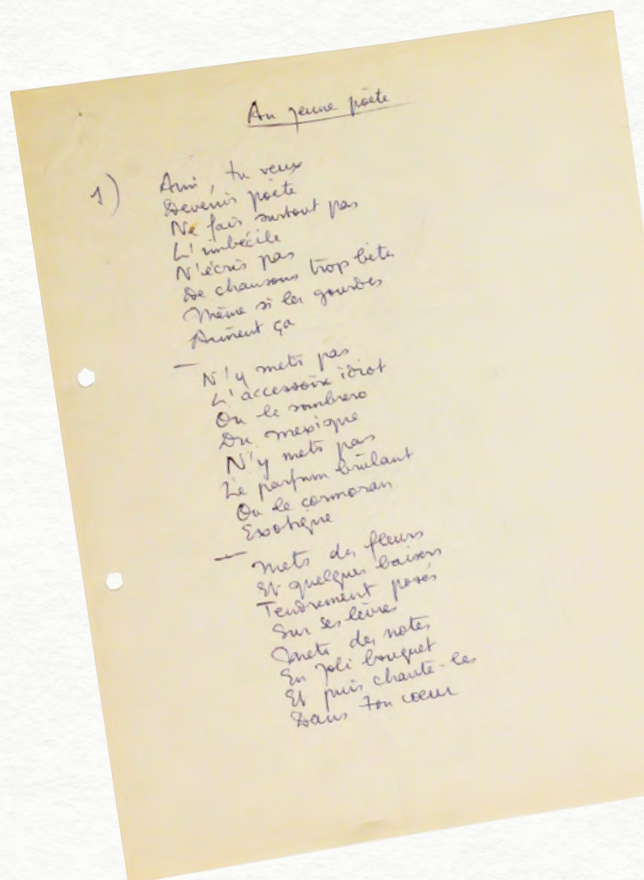 Au jeune poète
1) Ami, tu veux
Devenir poète
Ne fais surtout pas
L'imbécile
N'écris pas
De chansons trop bêtes
Même si les gourdes
Aiment ça
—
N'y mets pas
L'accessoire idiot
Ou le sombrero
Du mexique
N'y mets pas
Le parfum brûlant
Ou le cormoran
Exotique
—
Mets des fleurs
Et quelques baisers
Tendrement posés
Sur ses lèvres
Mets des notes
En joli bouquet
Et puis chante-les
Dans ton cœur